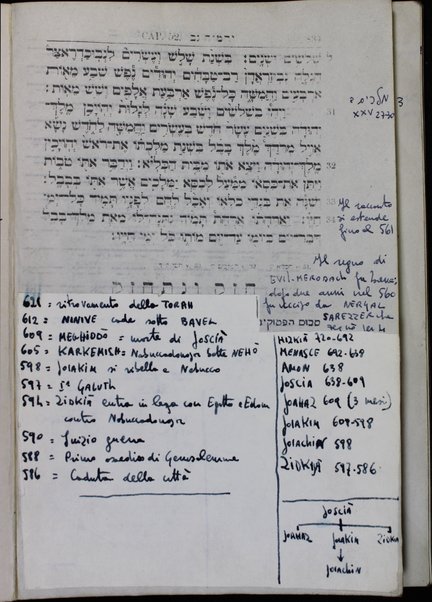 ירמיה נב
CAP. 52.
ל שלשים ושנים: בשנת שלש ועשרים לנבוכדראצר
הגלה נבוזראדן רב־טבחים יהודים נפש שבע מאות
ארבעים וחמשה כל־נפש ארבעת אלפים ושש מאות:
31 ויהי בשלשים ושבע שנה לגלות יהויכן מלך־
יהודה בשנים עשר חדש בעשרים וחמשה לחדש נשא
אויל מרדך מלך בבל בשנת מלכתו את־ראש יהויכין
32 מלך־יהודה ויצא אתו מבית הכלוא: וידבר אתו טבות
ויתן את־כסאו ממעל לכסא מלכים אשר אתו בבבל:
33 ושנה את בגדי כלאו ואכל לחם לפניו תמיד כל־ימי
חיו: וארחתו ארחת תמיד נתנה־לו מאת מלך־בבל
דבר־יום ביומו עד־יום מותו כל ימי חייו:
XXV 27-30
Il racconto
si estende
fino al 561
Il regno di
EVIL-MERODACH fu breve:
dopo due anni nel 560
fu ucciso da NERGAL
SAREZZER che
סכום הפסוקים
621 = ritrovamento della TORAH
612 = NINIVE cade sotto BAVEL
609 = MEGHIDDÒ = morte di JOSCIÀ
605 = KARKEMISH = Nabucodonosor batte NEHÒ
598 = JOIAKIM si ribella a Nabucco
597 = 1ª GALUTH
594 = ZIDKIÀ entra in lega con Egitto e Edom
contro Nabucodonosor
590 = Inizio guerra
588 = Primo assedio di Gerusalemme
586 = Caduta della città
HIZKIÀ 720-692
MENASCE 692-638
AMON 638
JOSCIA 638-609
JOAHAZ 609 (3 mesi)
JOIAKIM 609-598
JOIACHIN 598
ZIDKIÀ 597-586
JOSCIÀ
JOAHAZ JOIAKIM ZIDKIA
JOIACHIN